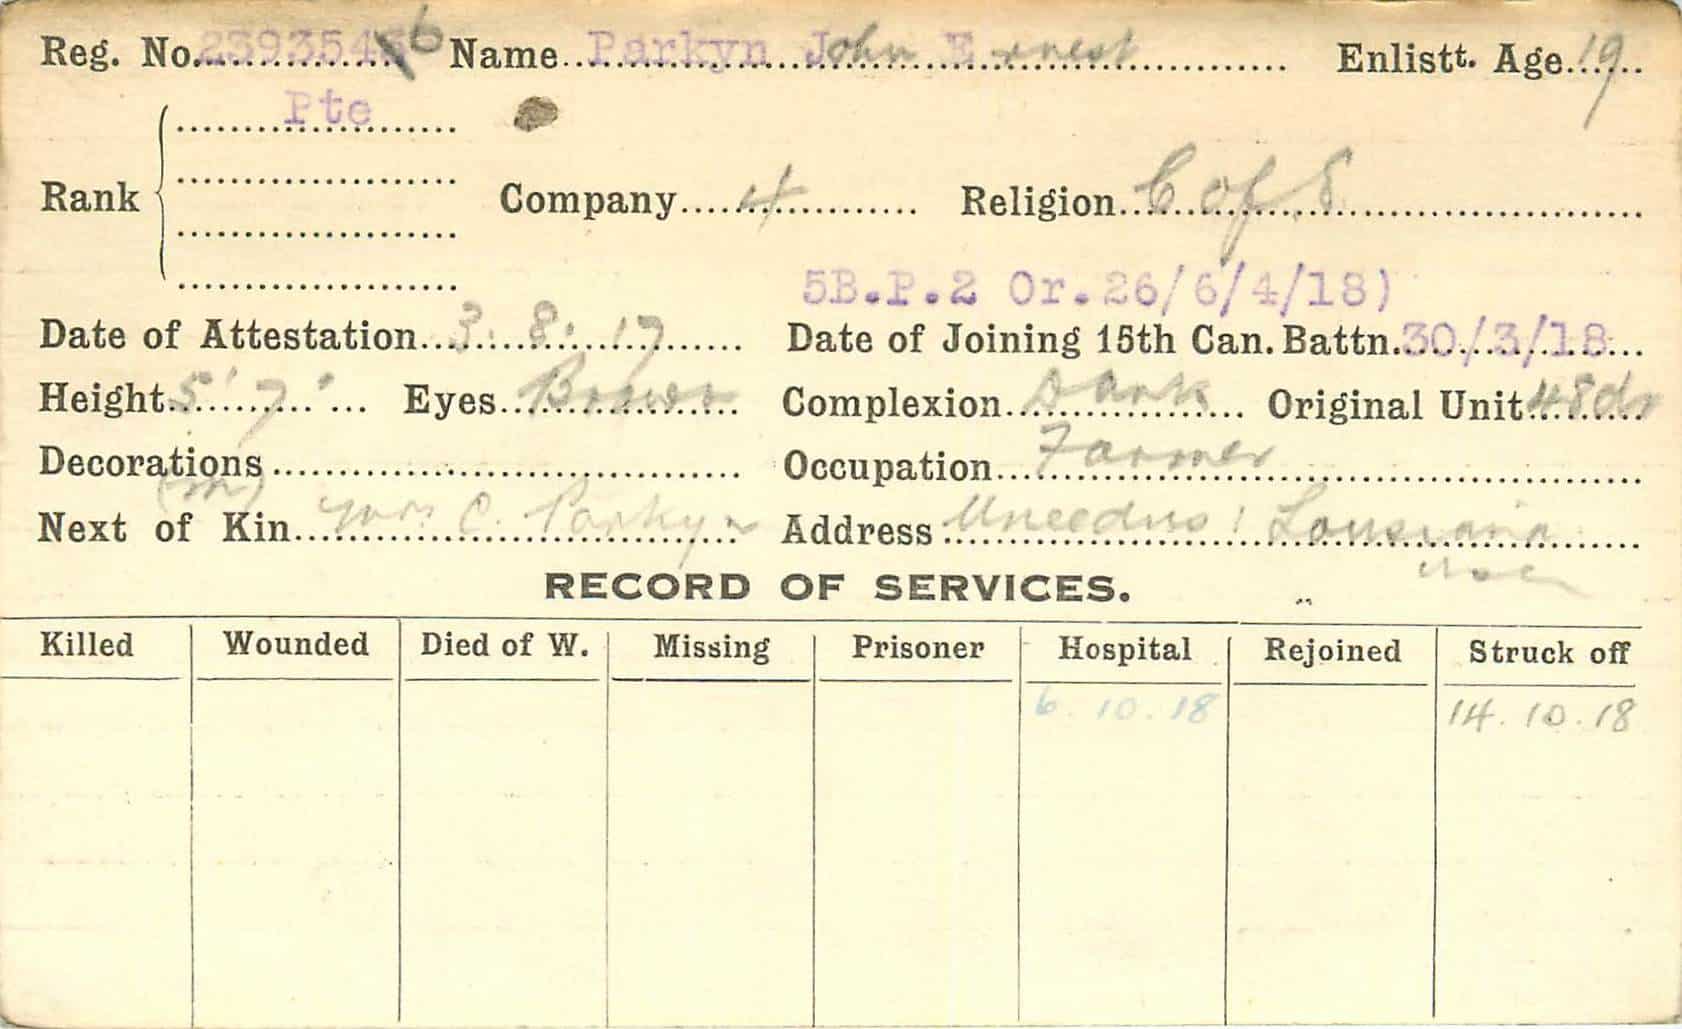 Reg. No. 2393546 Name Parkyn John Ernest Enlistt. Age 19
Pte
Rank Company 4 Religion C of E
5B.P.2 Or.26/6/4/18)
Date of Attestation 3. 8. 17 Date of Joining 15th Can. Battn. 30/3/18
Height 5' 7" Eyes Brown Complexion Dark Original Unit 48drs
Decorations Occupation Farmer
(m)
Next of Kin Mrs C. Parkyn Address Uneedus, Lousiana
RECORD OF SERVICES.
Killed Wounded Died of W. Missing Prisoner Hospital Rejoined Struck off
6. 10. 18 14. 10. 18